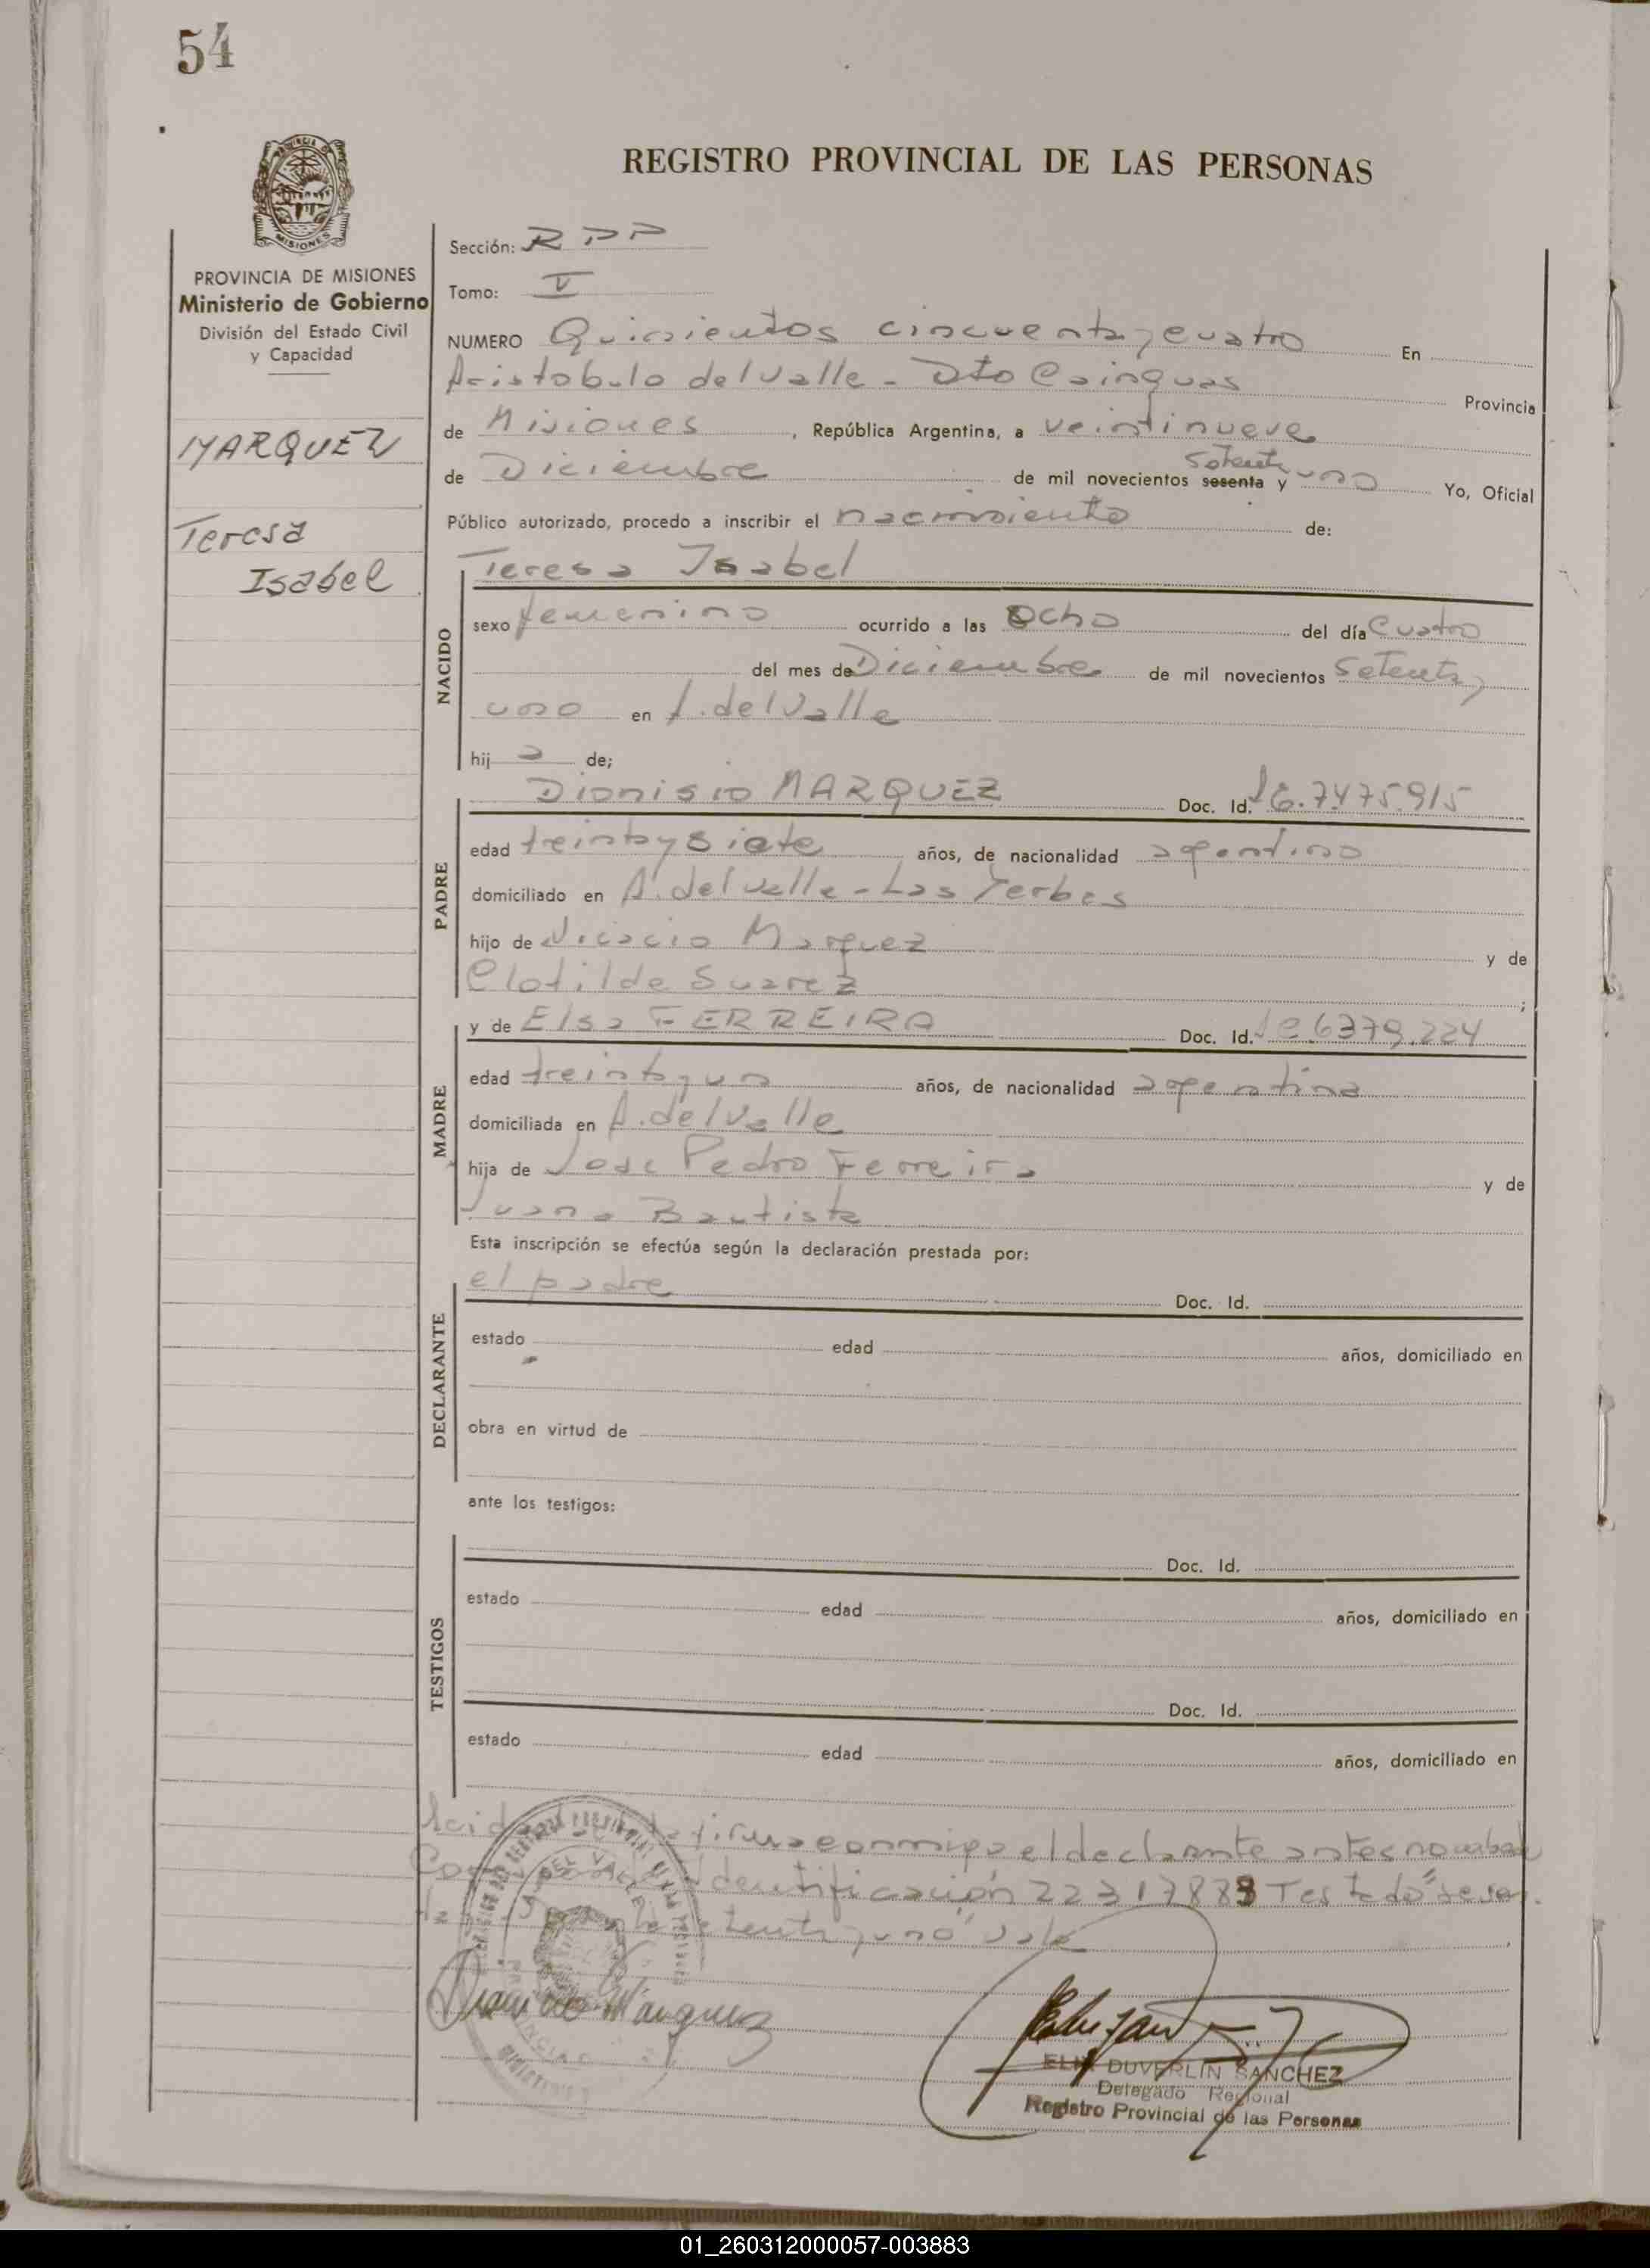 54
REGISTRO PROVINCIAL DE LAS PERSONAS
PROVINCIA DE MISIONES
Ministerio de Gobierno
División del Estado Civil
y Capacidad
MARQUEZ
Teresa
Isabel
Sección: RPP
Tomo: V
NUMERO Quinientos cincuenta y cuatro En
Aristobulo del Valle - Dto Cainguas Provincia
de Misiones, República Argentina, a veintinueve
setenta
de Diciembre de mil novecientos sesenta y uno Yo, Oficial
Público autorizado, procedo a inscribir el nacimiento de:
Teresa Isabel
NACIDO
sexo femenino ocurrido a las Ocho del día Cuatro
del mes de Diciembre de mil novecientos Setenta y
uno en A. del Valle
hij a de;
PADRE
Dionisio MARQUEZ Doc. Id.
edad treinta y siete años, de nacionalidad argentino
domiciliado en A. del Valle - Las Yerbas
hijo de Marquez y de
Clotilde Suarez ;
MADRE
y de Elsa FERREIRA Doc. Id. 6379.224
edad treinta y un años, de nacionalidad argentina
domiciliada en A. del Valle
hija de Jose Pedro Ferreira y de
Juana Bautista
Esta inscripción se efectúa según la declaración prestada por:
DECLARANTE
el padre Doc. Id.
estado edad años, domiciliado en
obra en virtud de
ante los testigos:
TESTIGOS
Doc. Id.
estado edad años, domiciliado en
Doc. Id.
estado edad años, domiciliado en
firma conmigo el declarante antes nombrado
identificación 22317883 Testado "sesen
ta setenta y uno" vale
Dionisio Marquez
ELIX DUVERLIN SANCHEZ
Delegado Regional
Registro Provincial de las Personas
01_260312000057-003883